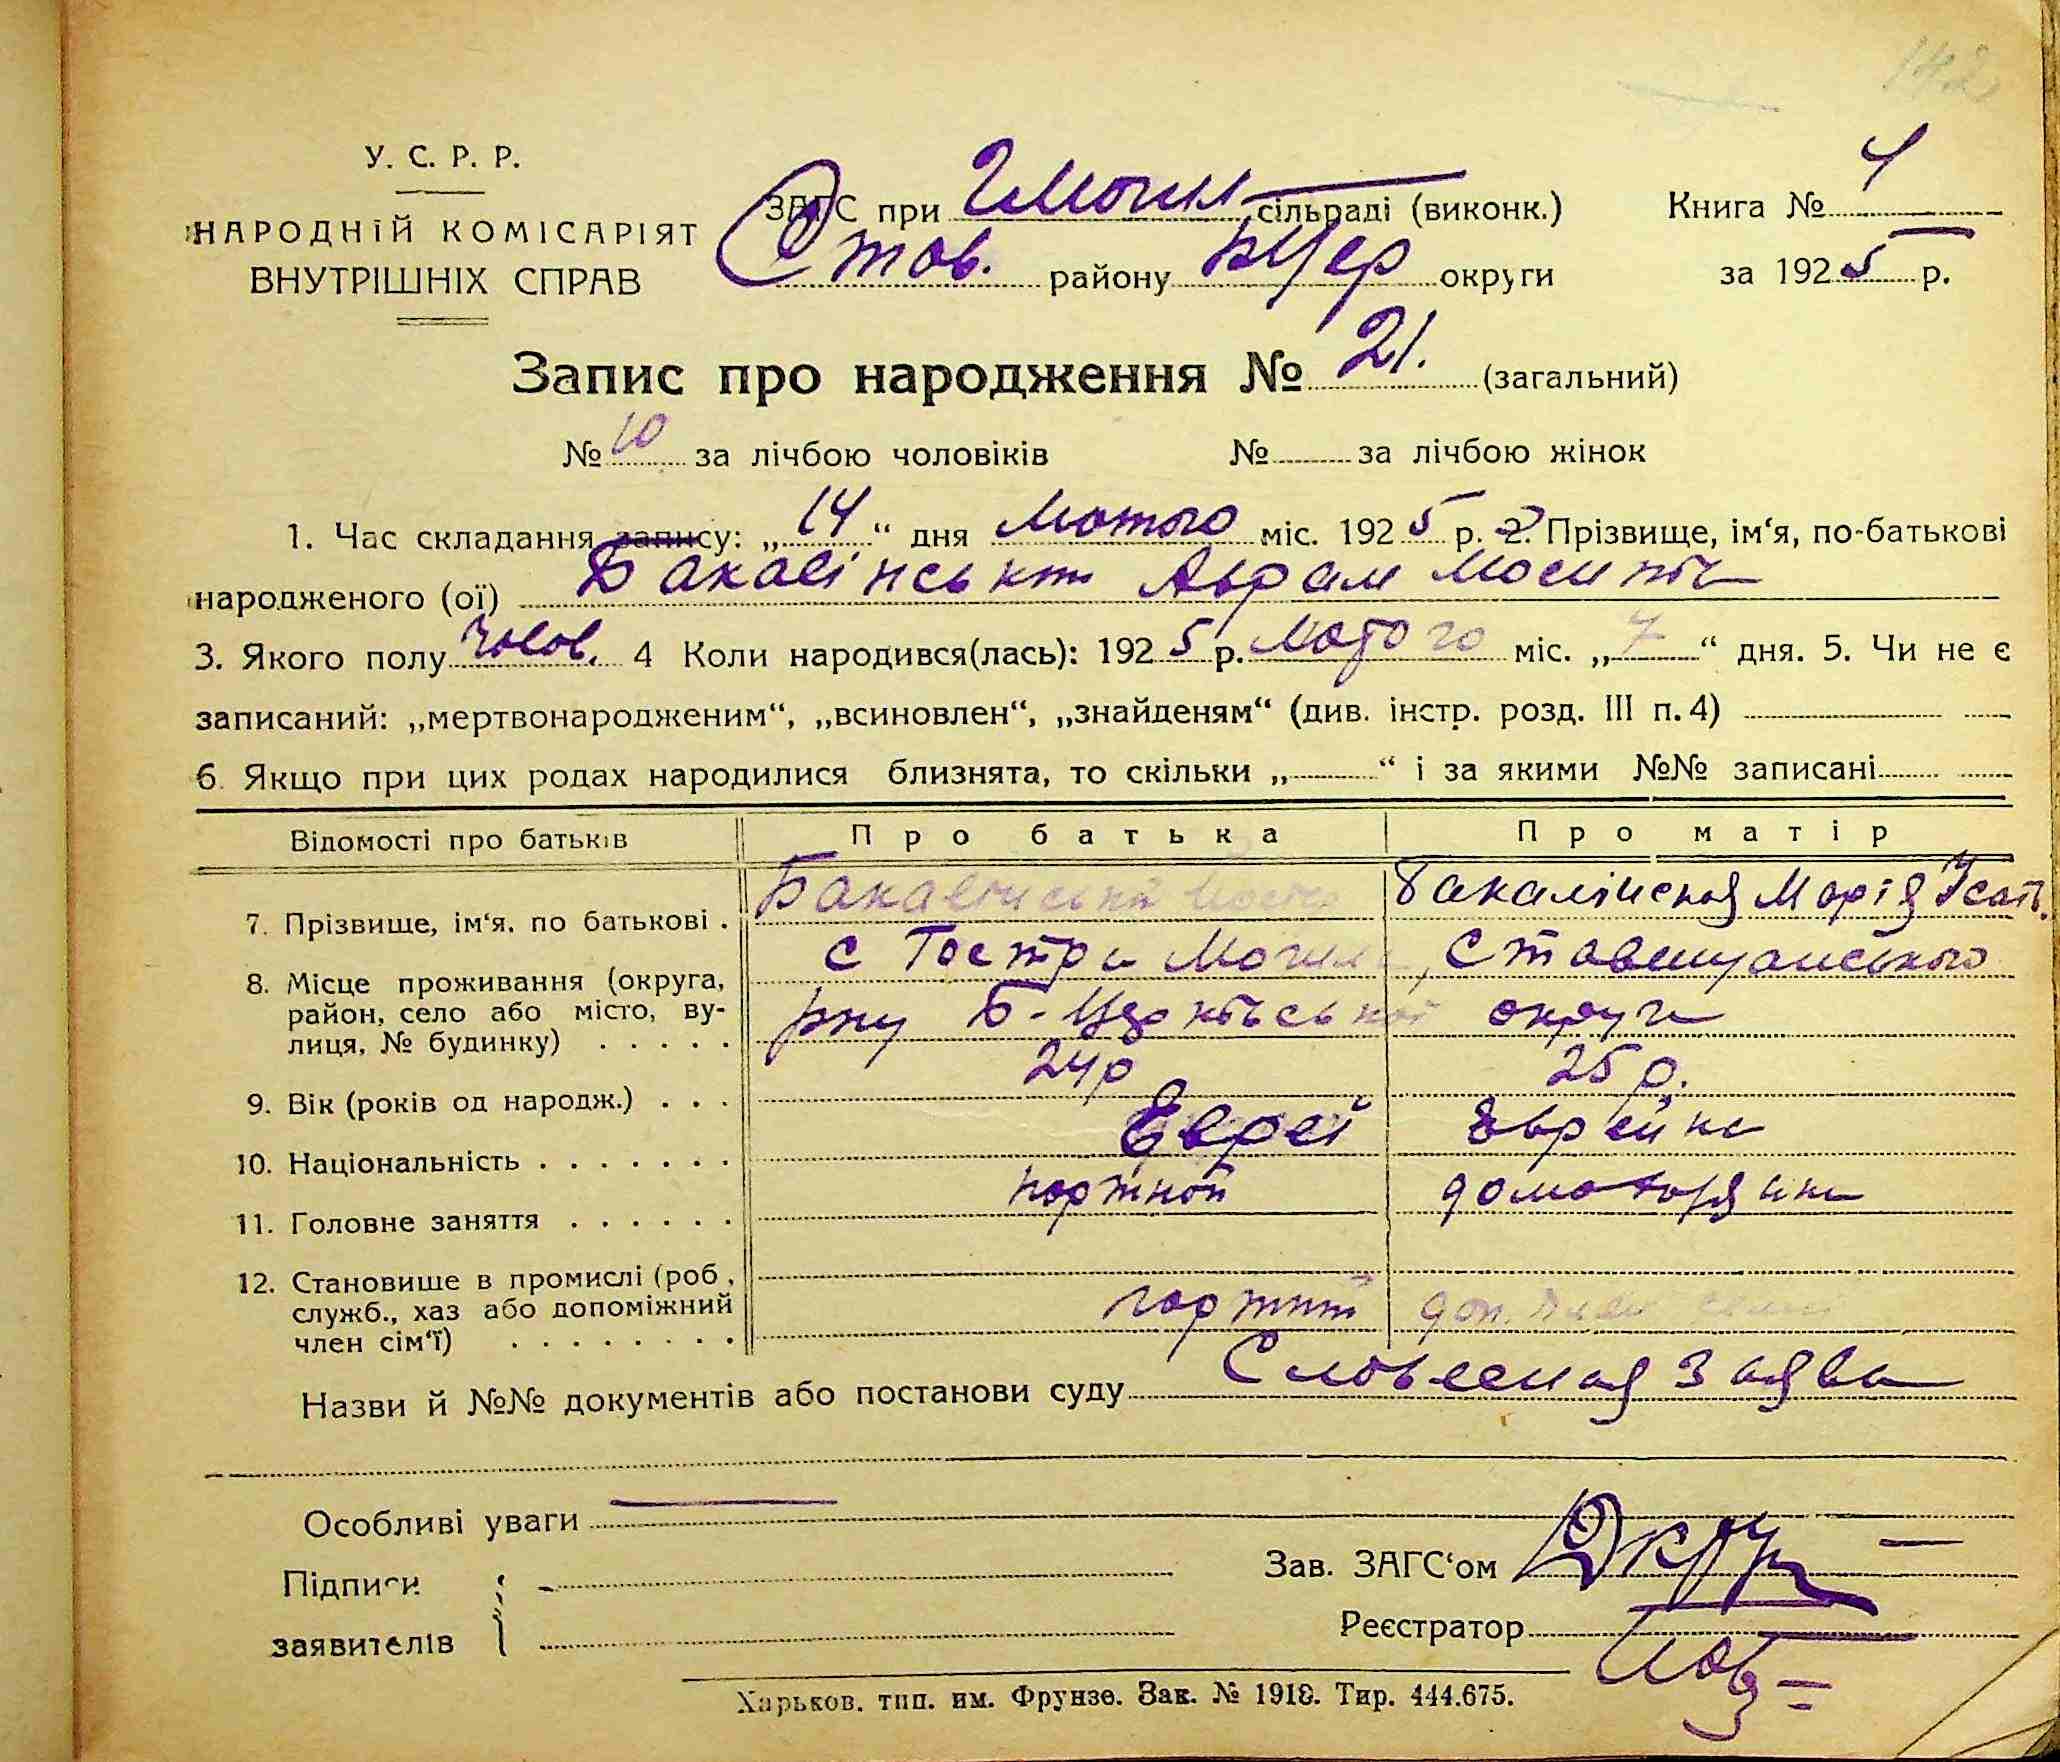 142
У. С. Р. Р.
НАРОДНІЙ КОМІСАРІЯТ
ВНУТРІШНІХ СПРАВ
ЗАГС при Гмогил сільраді (виконк.)
Став. району БЦер округи
Книга № 4
за 1925 р.
Запис про народження № 21. (загальний)
№ 10 за лічбою чоловіків № за лічбою жінок
1. Час складання запису: „14“ дня Лютого міс. 1925 р. 2. Прізвище, ім‘я, по-батькові
народженого (ої) Бакалінський Аврам
3. Якого полу Чолов. 4 Коли народився(лась): 1925 р. Лютого міс. „7“ дня. 5. Чи не є
записаний: „мертвонародженим“, „всиновлен“, „знайденям“ (див. інстр. розд. III п. 4)
6. Якщо при цих родах народилися близнята, то скільки „ “ і за якими №№ записані
Відомості про батьків Про батька Про матір
7. Прізвище, ім‘я. по батькові . Бакалінський Бакалінская Марія
8. Місце проживання (округа,
район, село або місто, ву-
лиця, № будинку) . . . . .
с Гостра Могила, Ставищанського
рну Б-Церківської округи
9. Вік (років од народж.) . . . 24р 25 р.
10. Національність . . . . . . . Еврей Еврейка
11. Головне заняття . . . . . . портной домохазяйка
12. Становище в промислі (роб,
служб., хаз або допоміжний
член сім‘ї) . . . . . . . .
Назви й №№ документів або постанови суду Словесная Заява
Особливі уваги
Підписи
заявителів
Зав. ЗАГС‘ом
Реєстратор
Харьков. тип. им. Фрунзе. Зак. № 1918. Тир. 444.675.